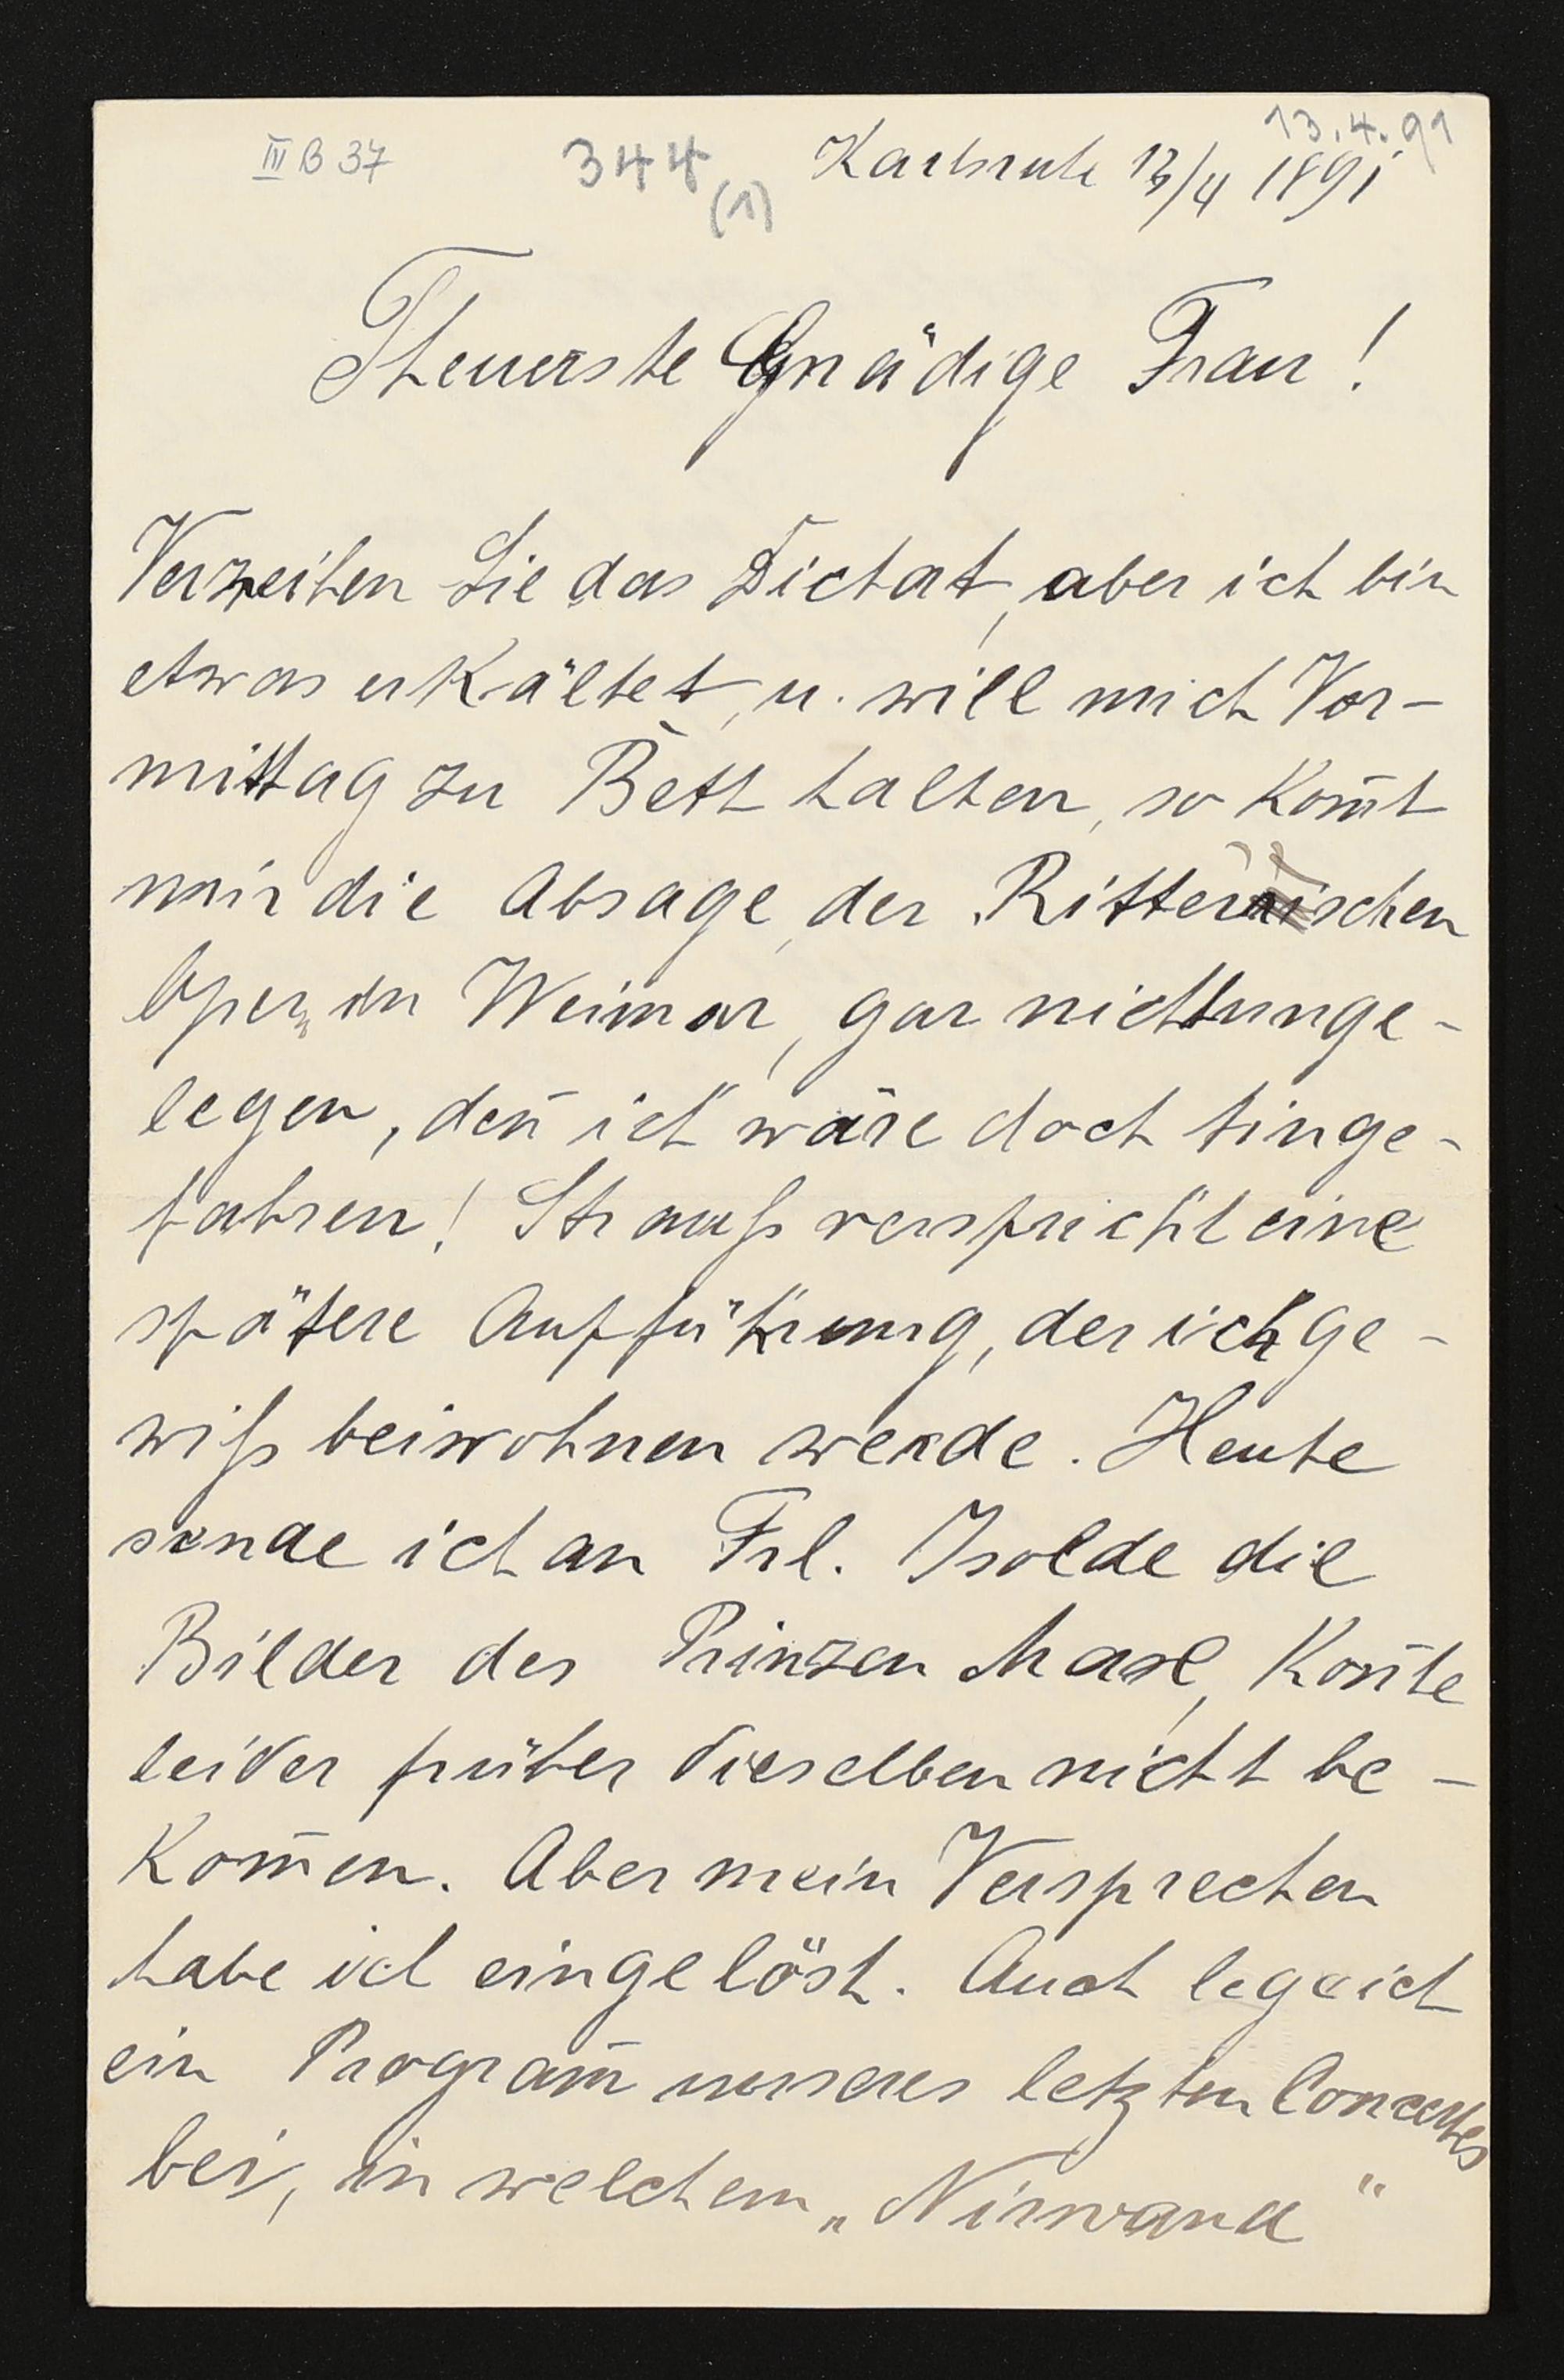 III B 37
344
(1)
13.4.91
Karlsruhe 13/4 1891
Theuerste Gnädige Frau!
Verzeihen Sie das Dictat, aber ich bin
etwas erkältet, u. will mich Vor-
mittag zu Bett halten, so kom̄t
mir die Absage, der Ritterischen
Oper, in Weimar, gar nicht unge-
legen, den̄ ich wäre doch hinge-
fahren! Strauß verspricht eine
spätere Aufführung, der ich ge-
wiß beiwohnen werde. Heute
sende ich an Frl. Isolde die
Bilder des Prinzen Maxl, kon̄te
leider früher dieselben nicht be-
kom̄en. Aber mein Versprechen
habe ich eingelöst. Auch lege ich
ein Program̄ unseres letzten Concertes
bei, in welchem „Nirwana“